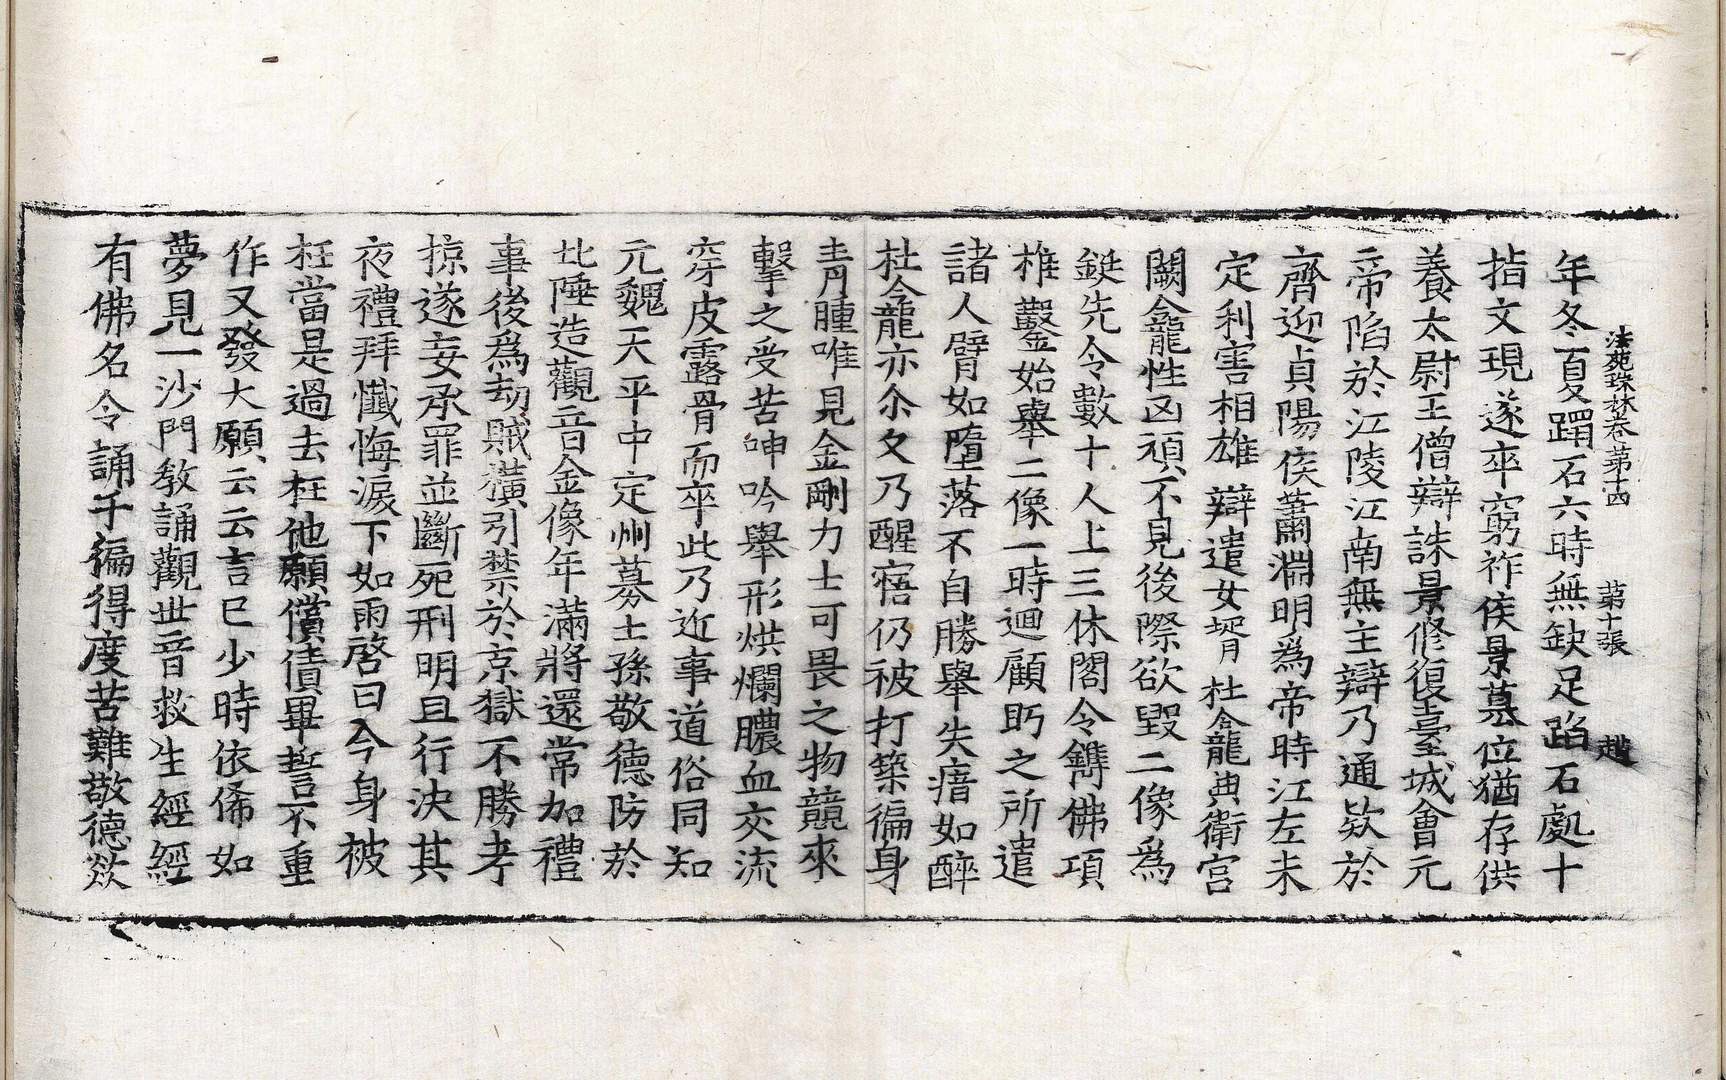 法苑珠林卷第十四 第十張 趙
年冬夏躡石六時無缺足蹈石處十
指文現遂卒窮祚侯景墓位猶存供
養太尉王僧辯誅景修復臺城會元
帝陷於江陵江南無主辯乃通欵於
齊迎貞陽侯蕭淵明爲帝時江左未
定利害相雄辯遣女婿杜龕典衛宮
闕龕性凶頑不見後際欲毀二像爲
鋌先令數十人上三休閣令鐫佛項
椎鑿始舉二像一時迴顧眄之所遣
諸人臂如墮落不自勝舉失瘖如醉
杜龕亦尒久乃醒寤仍被打築徧身
青腫唯見金剛力士可畏之物競來
擊之受苦呻吟舉形烘爛膿血交流
穿皮露骨而卒此乃近事道俗同知
元魏天平中定州募士孫敬德防於
北陲造觀音金像年滿將還常加禮
事後爲劫賊橫引禁於京獄不勝考
掠遂妄承罪並斷死刑明旦行決其
夜禮拜懺悔淚下如雨啓曰今身被
枉當是過去枉他願償債畢誓不重
作又發大願云云言已少時依俙如
夢見一沙門教誦觀世音救生經經
有佛名令誦千徧得度苦難敬德欻